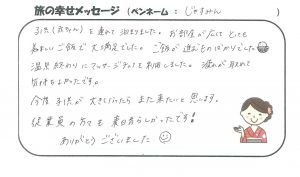 旅の幸せメッセージ (ペンネーム: じゃすみん )
子供(赤ちゃん)を連れて泊まりました。お部屋が広くとても
ご飯で大満足でした。ご飯が進むものばかりでした
温泉終わりにマッサージチェアを利用しました。疲れが取れて
気持ちよかったです。
今後子供が大きくなったらまた来たいと思います。
従業員の方々も素晴らしかったです!
ありがとうございました